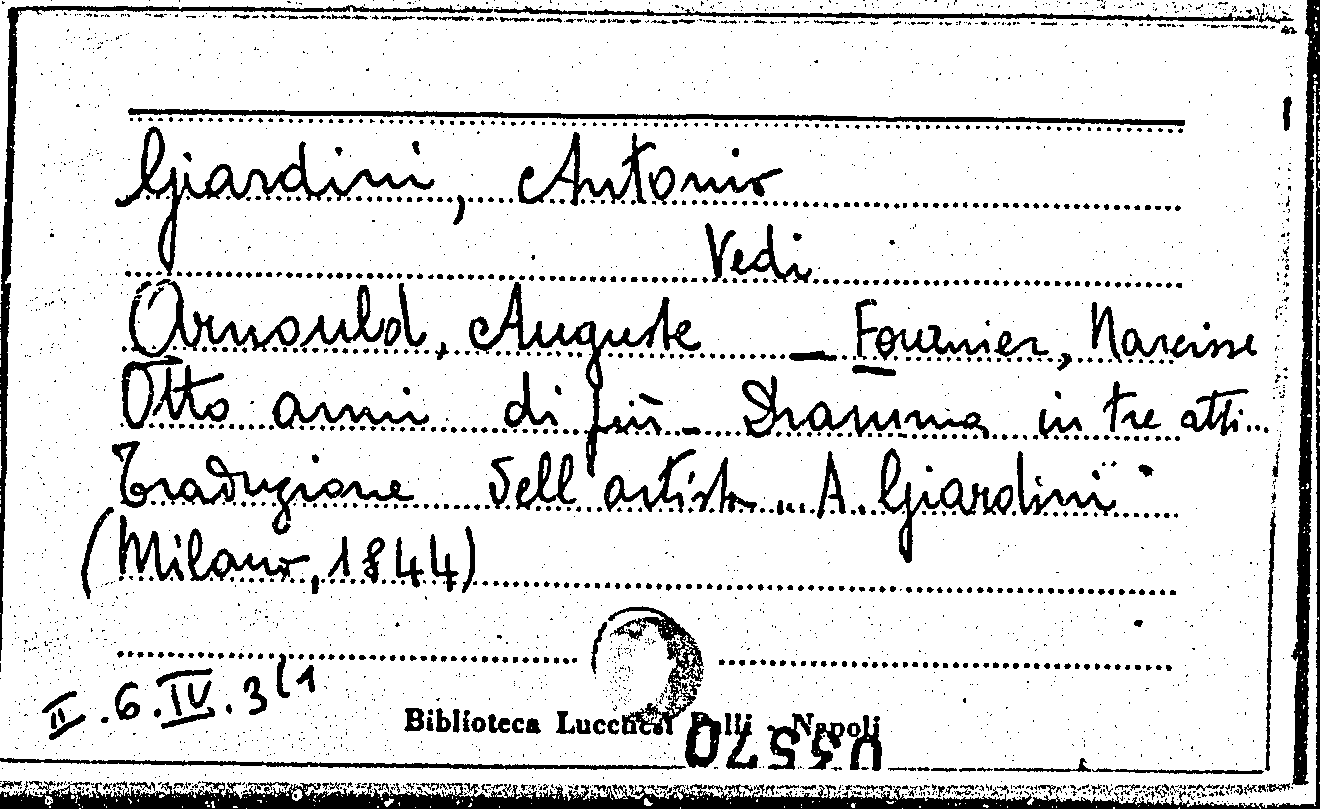 Giardini, Antonio
Vedi
Arnould, Auguste — Fournier, Narcisse
Otto anni di più - Dramma in tre atti...
Traduzione dell'artista... A. Giardini
(Milano, 1844)
II.6.IV.3(1
Biblioteca Lucchesi Palli - Napoli